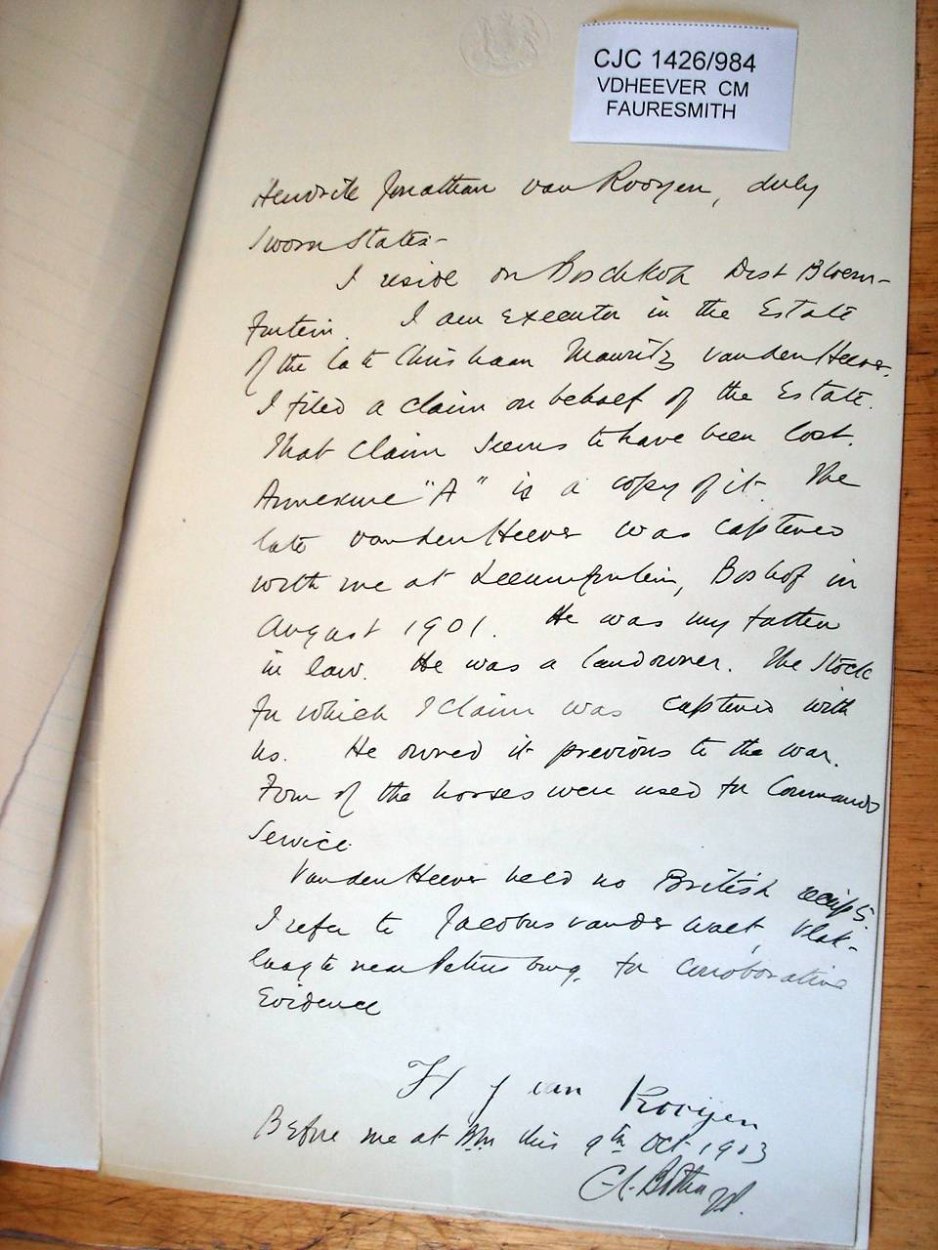 CJC 1426/984
VDHEEVER CM
FAURESMITH
Hendrik Jonathan van Rooyen, duly
sworn states:-
I reside on Boschkop Dist Bloem-
fontein. I am executor in the Estate
of the late Christiaan Mauritz vanden Heever.
I filed a claim on behalf of the Estate.
That claim seems to have been lost.
Annexure "A" is a copy of it. The
late vanden Heever was captured
with me at Leeuwfontein, Boshof in
August 1901. He was my father
in law. He was a landowner. The stock
for which I claim was captured with
us. He owned it previous to the war.
Four of the horses were used for Commando
Service.
Vanden Heever held no British receipts.
I refer to Jacobus vander Walt, Vlak-
laagte near Petrusburg, for corroborative
Evidence
H J van Rooijen
Before me at Bfn this 9th Oct 1903
Botha